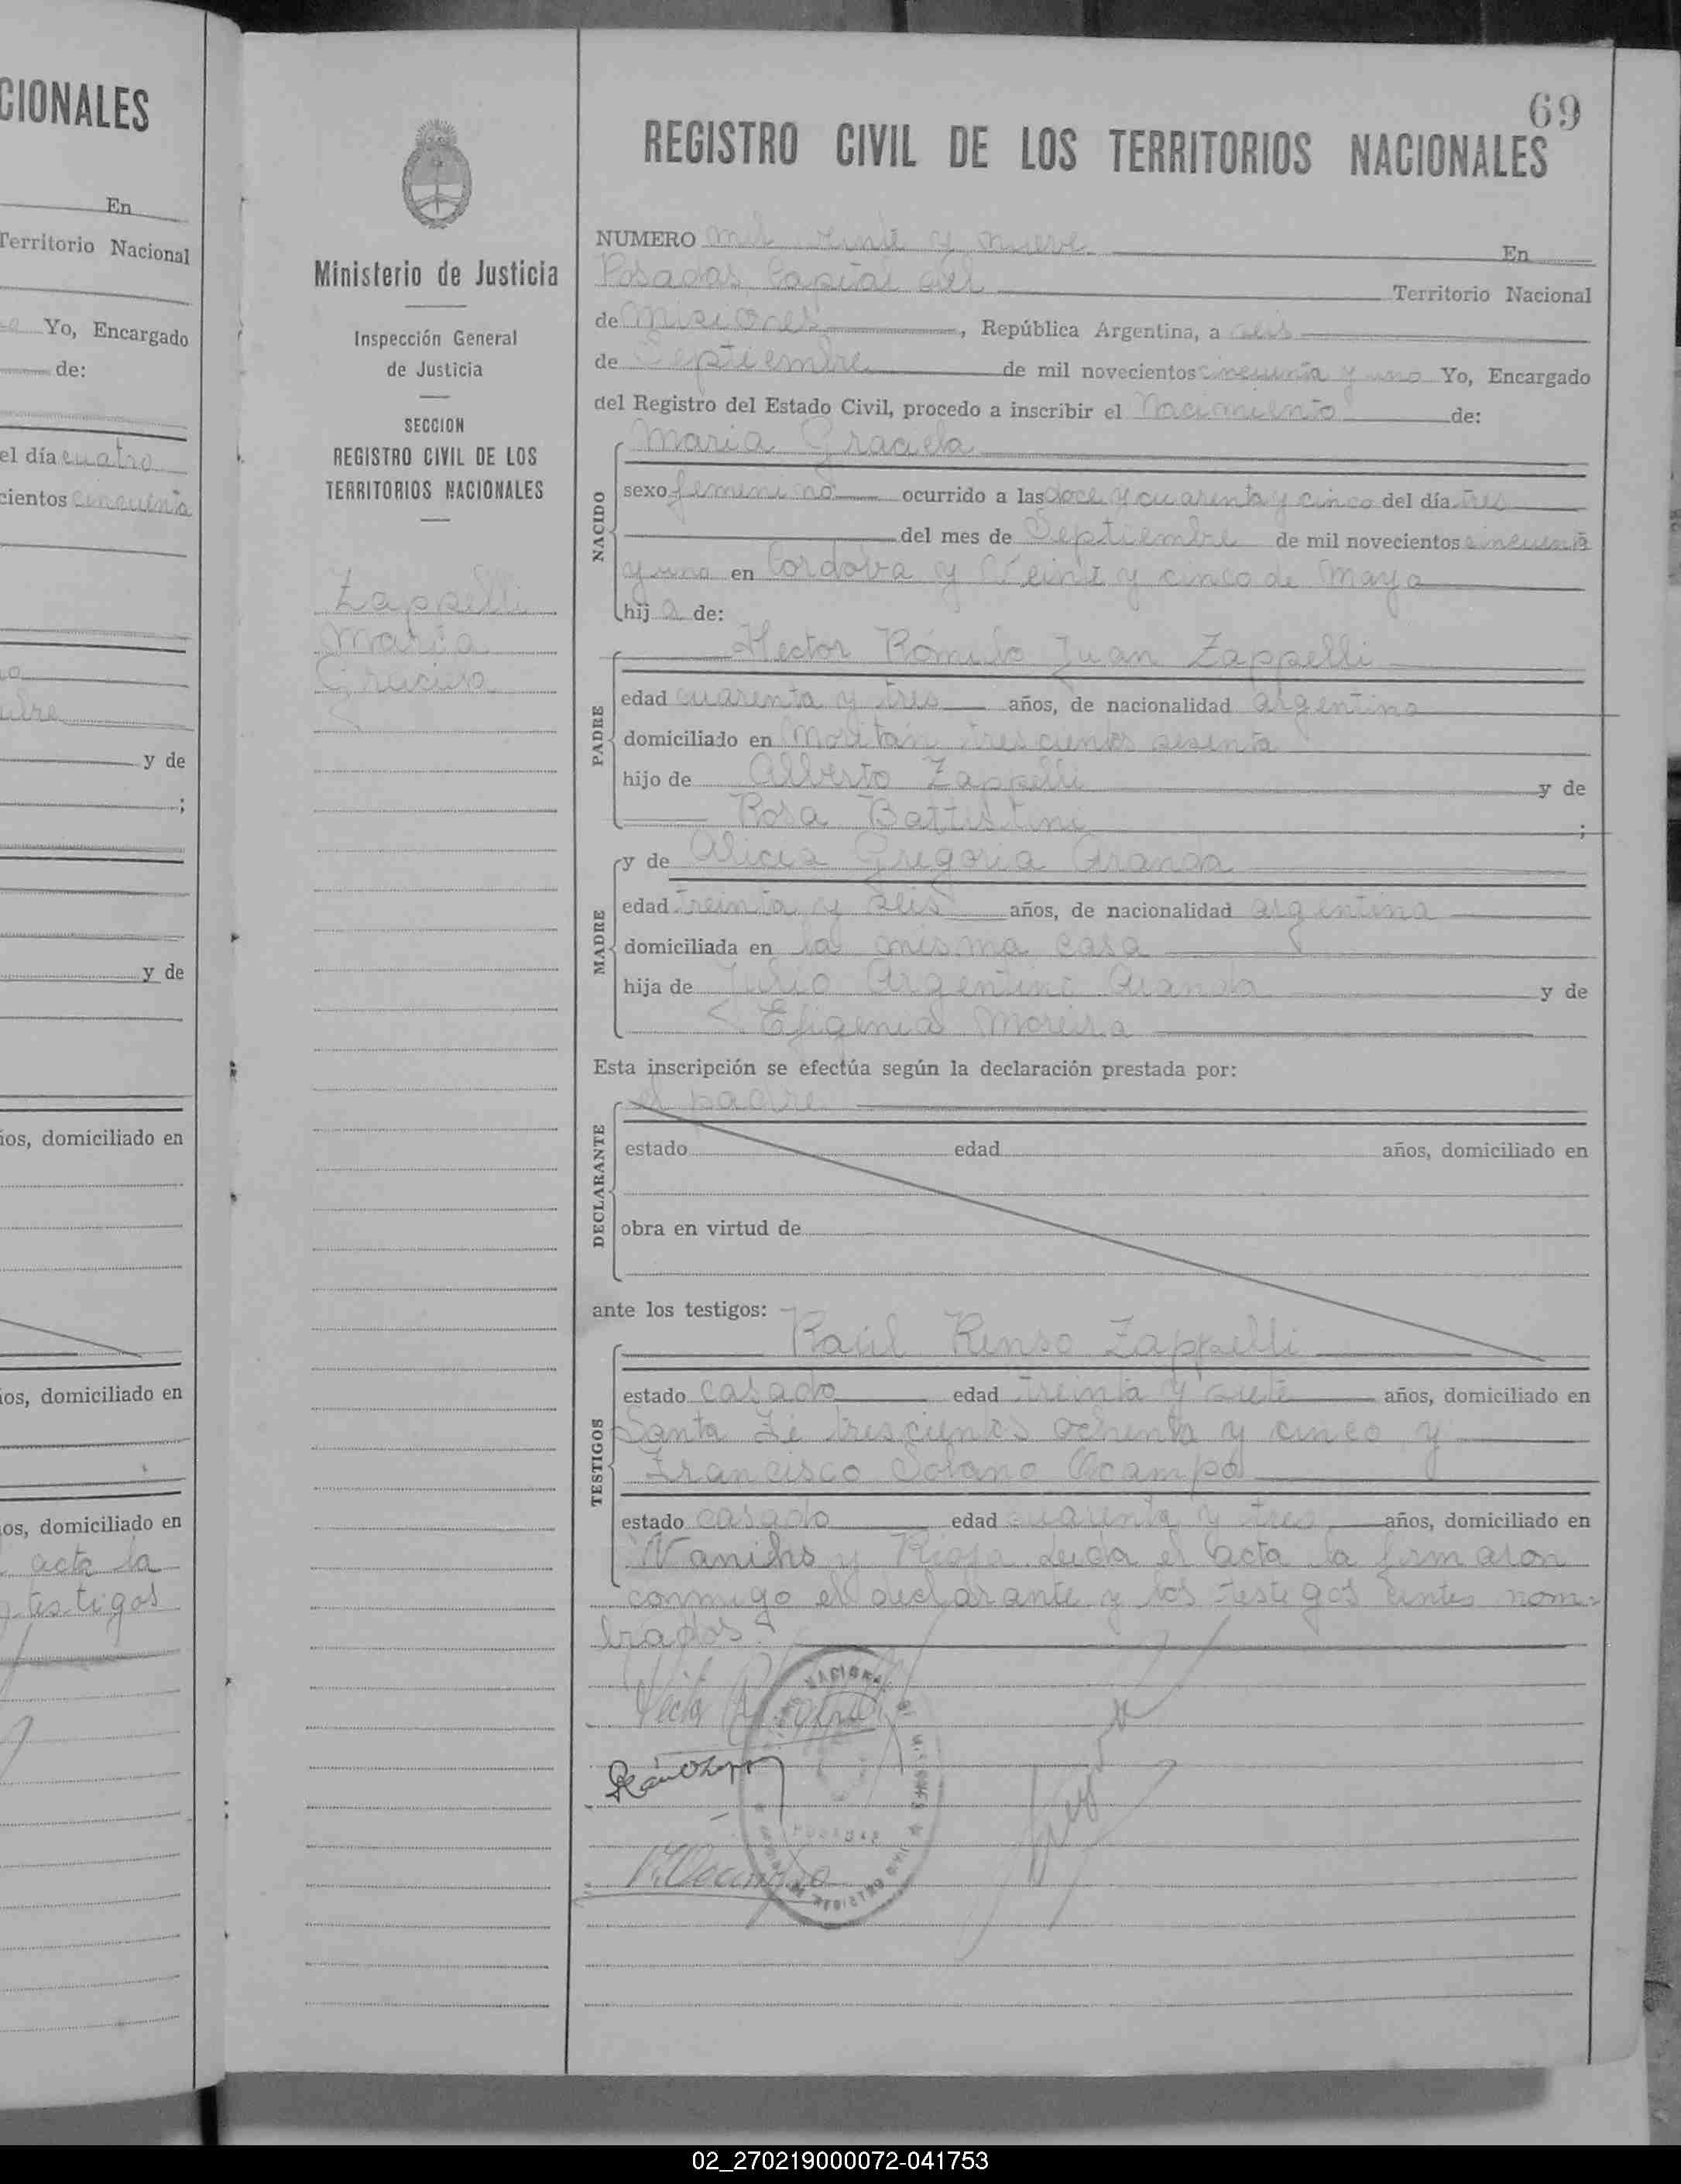 CIONALES
En
Territorio Nacional
Yo, Encargado
de:
el día cuatro
cientos cincuenta
y de
;
y de
ios, domiciliado en
ios, domiciliado en
os, domiciliado en
acta la
testigos
Ministerio de Justicia
Inspección General
de Justicia
SECCION
REGISTRO CIVIL DE LOS
TERRITORIOS NACIONALES
Zappelli
Maria
Graciela
69
REGISTRO CIVIL DE LOS TERRITORIOS NACIONALES
NUMERO mil veinte y nueve En
Posadas Capital del Territorio Nacional
de Misiones, República Argentina, a seis
de Septiembre de mil novecientos cincuenta y uno Yo, Encargado
del Registro del Estado Civil, procedo a inscribir el Nacimiento de:
Maria Graciela
NACIDO
sexo femenino ocurrido a las doce y cuarenta y cinco del día tres
del mes de Septiembre de mil novecientos cincuenta
y uno en Cordoba y Veinte y cinco de Mayo
hija de:
Hector Rómulo Juan Zappelli
PADRE
edad cuarenta y tres años, de nacionalidad argentina
domiciliado en trescientos sesenta
hijo de Alberto Zappelli y de
Rosa Battistini ;
MADRE
y de Alicia Gregoria Aranda
edad treinta y seis años, de nacionalidad argentina
domiciliada en la misma casa
hija de Julio Argentino Aranda y de
Efigenia Moreira
Esta inscripción se efectúa según la declaración prestada por:
el padre
DECLARANTE
estado edad años, domiciliado en
obra en virtud de
ante los testigos:
Raúl Renso Zappelli
TESTIGOS
estado casado edad treinta y siete años, domiciliado en
Santa Fé trescientos ochenta y cinco y
Francisco Solano Ocampo
estado casado edad cuarenta y tres años, domiciliado en
y Rioja Leida el acta la firmaron
conmigo el declarante y los testigos antes nom-
brados.
02_270219000072-041753